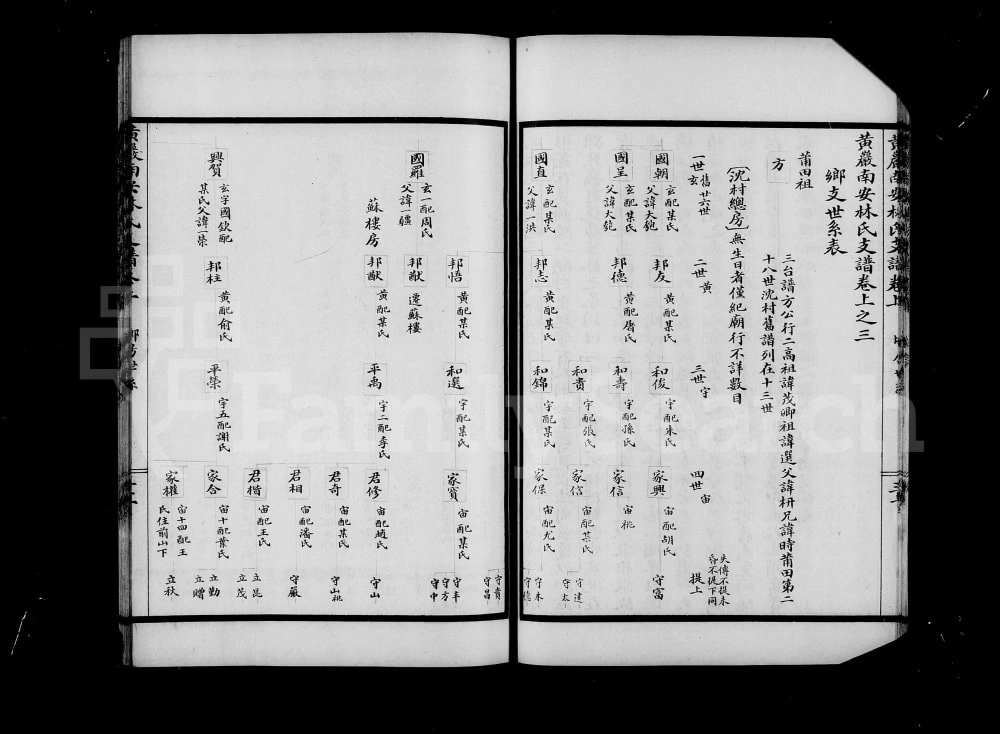 黃巖南安林氏支譜卷上之三
鄉支世系表
莆田祖
方
三台譜方公行二高祖諱茂卿祖諱選父諱枅兄諱時莆田第二
十八世沈村舊譜列在十三世
〔沈村總房〕無生日者僅紀廟行不詳數目
一世玄 舊廿六世
二世黃
三世宇
四世宙
提上
失傳不提未
昏不提下同
國朝 玄配某氏
父諱大匏
邦友 黃配某氏
和俊 宇配朱氏
家興 宙配胡氏
守富
國呈 玄配某氏
父諱大匏
邦德 黃配屠氏
和壽 宇配孫氏
家信 宙祧
和貴 宇配張氏
家信 宙配某氏
守達
守太
國直 玄配某氏
父諱一洪
邦志 黃配某氏
和錦 宇配某氏
家保 宙配尤氏
守本
守德
守貴
守昌
國羅 玄一配周氏
父諱一疆
邦悟 黃配某氏
和選 宇配某氏
家寶 宙配某氏
守丰
守方
守中
邦猷 遷蘇樓
蘇樓房
邦猷 黃配某氏
平禹 宇二配李氏
君修 宙配趙氏
守山
君奇 宙配某氏
守山祧
君相 宙配潘氏
守嚴
君楷 宙配王氏
立昆
立茂
興賀 玄字國欽配
某氏父諱一榮
邦柱 黃配俞氏
平榮 宇五配謝氏
家合 宙十配葉氏
立勤
立贈
家權 宙十四配王
氏住前山下
立秋
FamilySearch